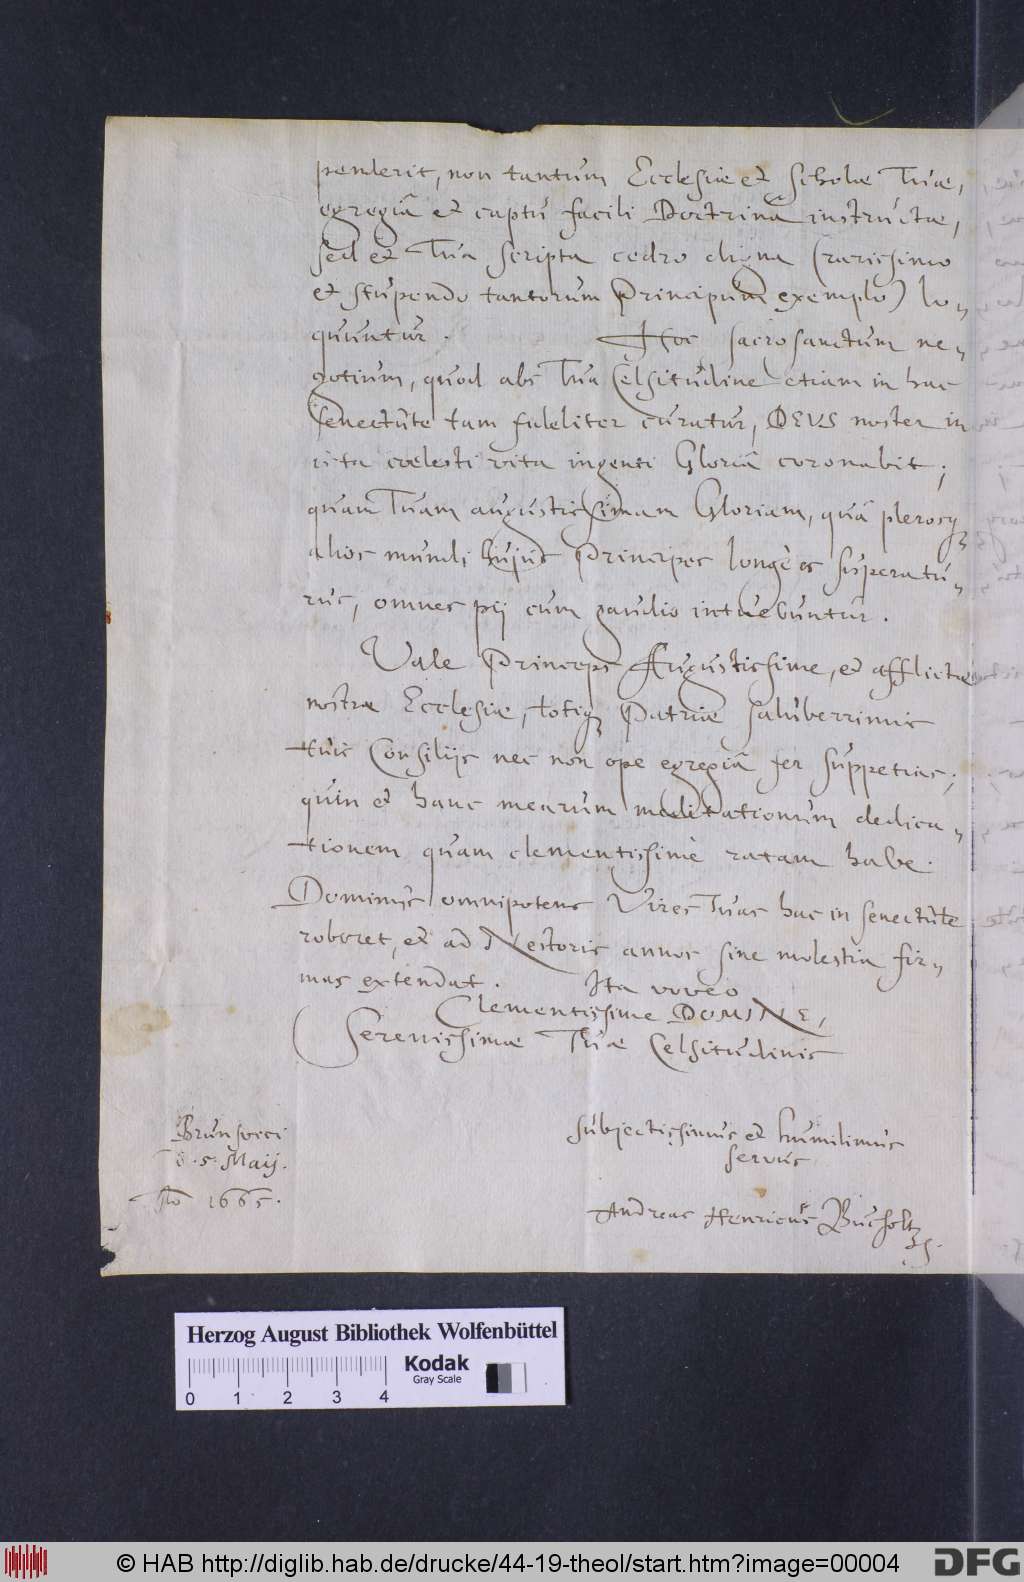 penderit, non tantum Ecclesiæ et Scholæ Tuæ,
egregiâ et captu facili Doctrinâ instructæ,
sed et Tua scripta cedro digna (rarissimo
et stupendo tantorum Principum exemplo) lo-
quuntur. Hoc sacrosanctum ne-
gotium, quod abs Tua Celsitudine etiam in hac
senectute tam fideliter curatur, DEUS noster in
ista coelesti vita ingenti Gloriâ coronabit;
quam Tuam augustissimam Gloriam, quâ plerosq
alios mundi hujus Principes longè es superatu-
rus, omnes pij cum gaudio intuebuntur.
Vale Princeps Augustissime, et afflictæ
nostræ Ecclesiæ, totiq Patriæ saluberrimis
tuis Consilijs nec non ope egregiâ fer suppetias;
quin et hanc mearum meditationum dedica-
tionem quam clementissimè ratam habe.
Dominus omnipotens Vires Tuas hac in senectute
roboret, et ad Nestoris annos sine molestia fir-
mas extendat. Ita voveo
Clementissime DOMINE,
Serenissimæ Tuæ Celsitudinis
Brunsvici
d. 5. Maij.
Ao 1665.
subjectissimus et humilimus
servus
Andreas Henricus Bucholtz
Herzog August Bibliothek Wolfenbüttel
Kodak
Gray Scale
0 1 2 3 4
© HAB http://diglib.hab.de/drucke/44-19-theol/start.htm?image=00004
DFG